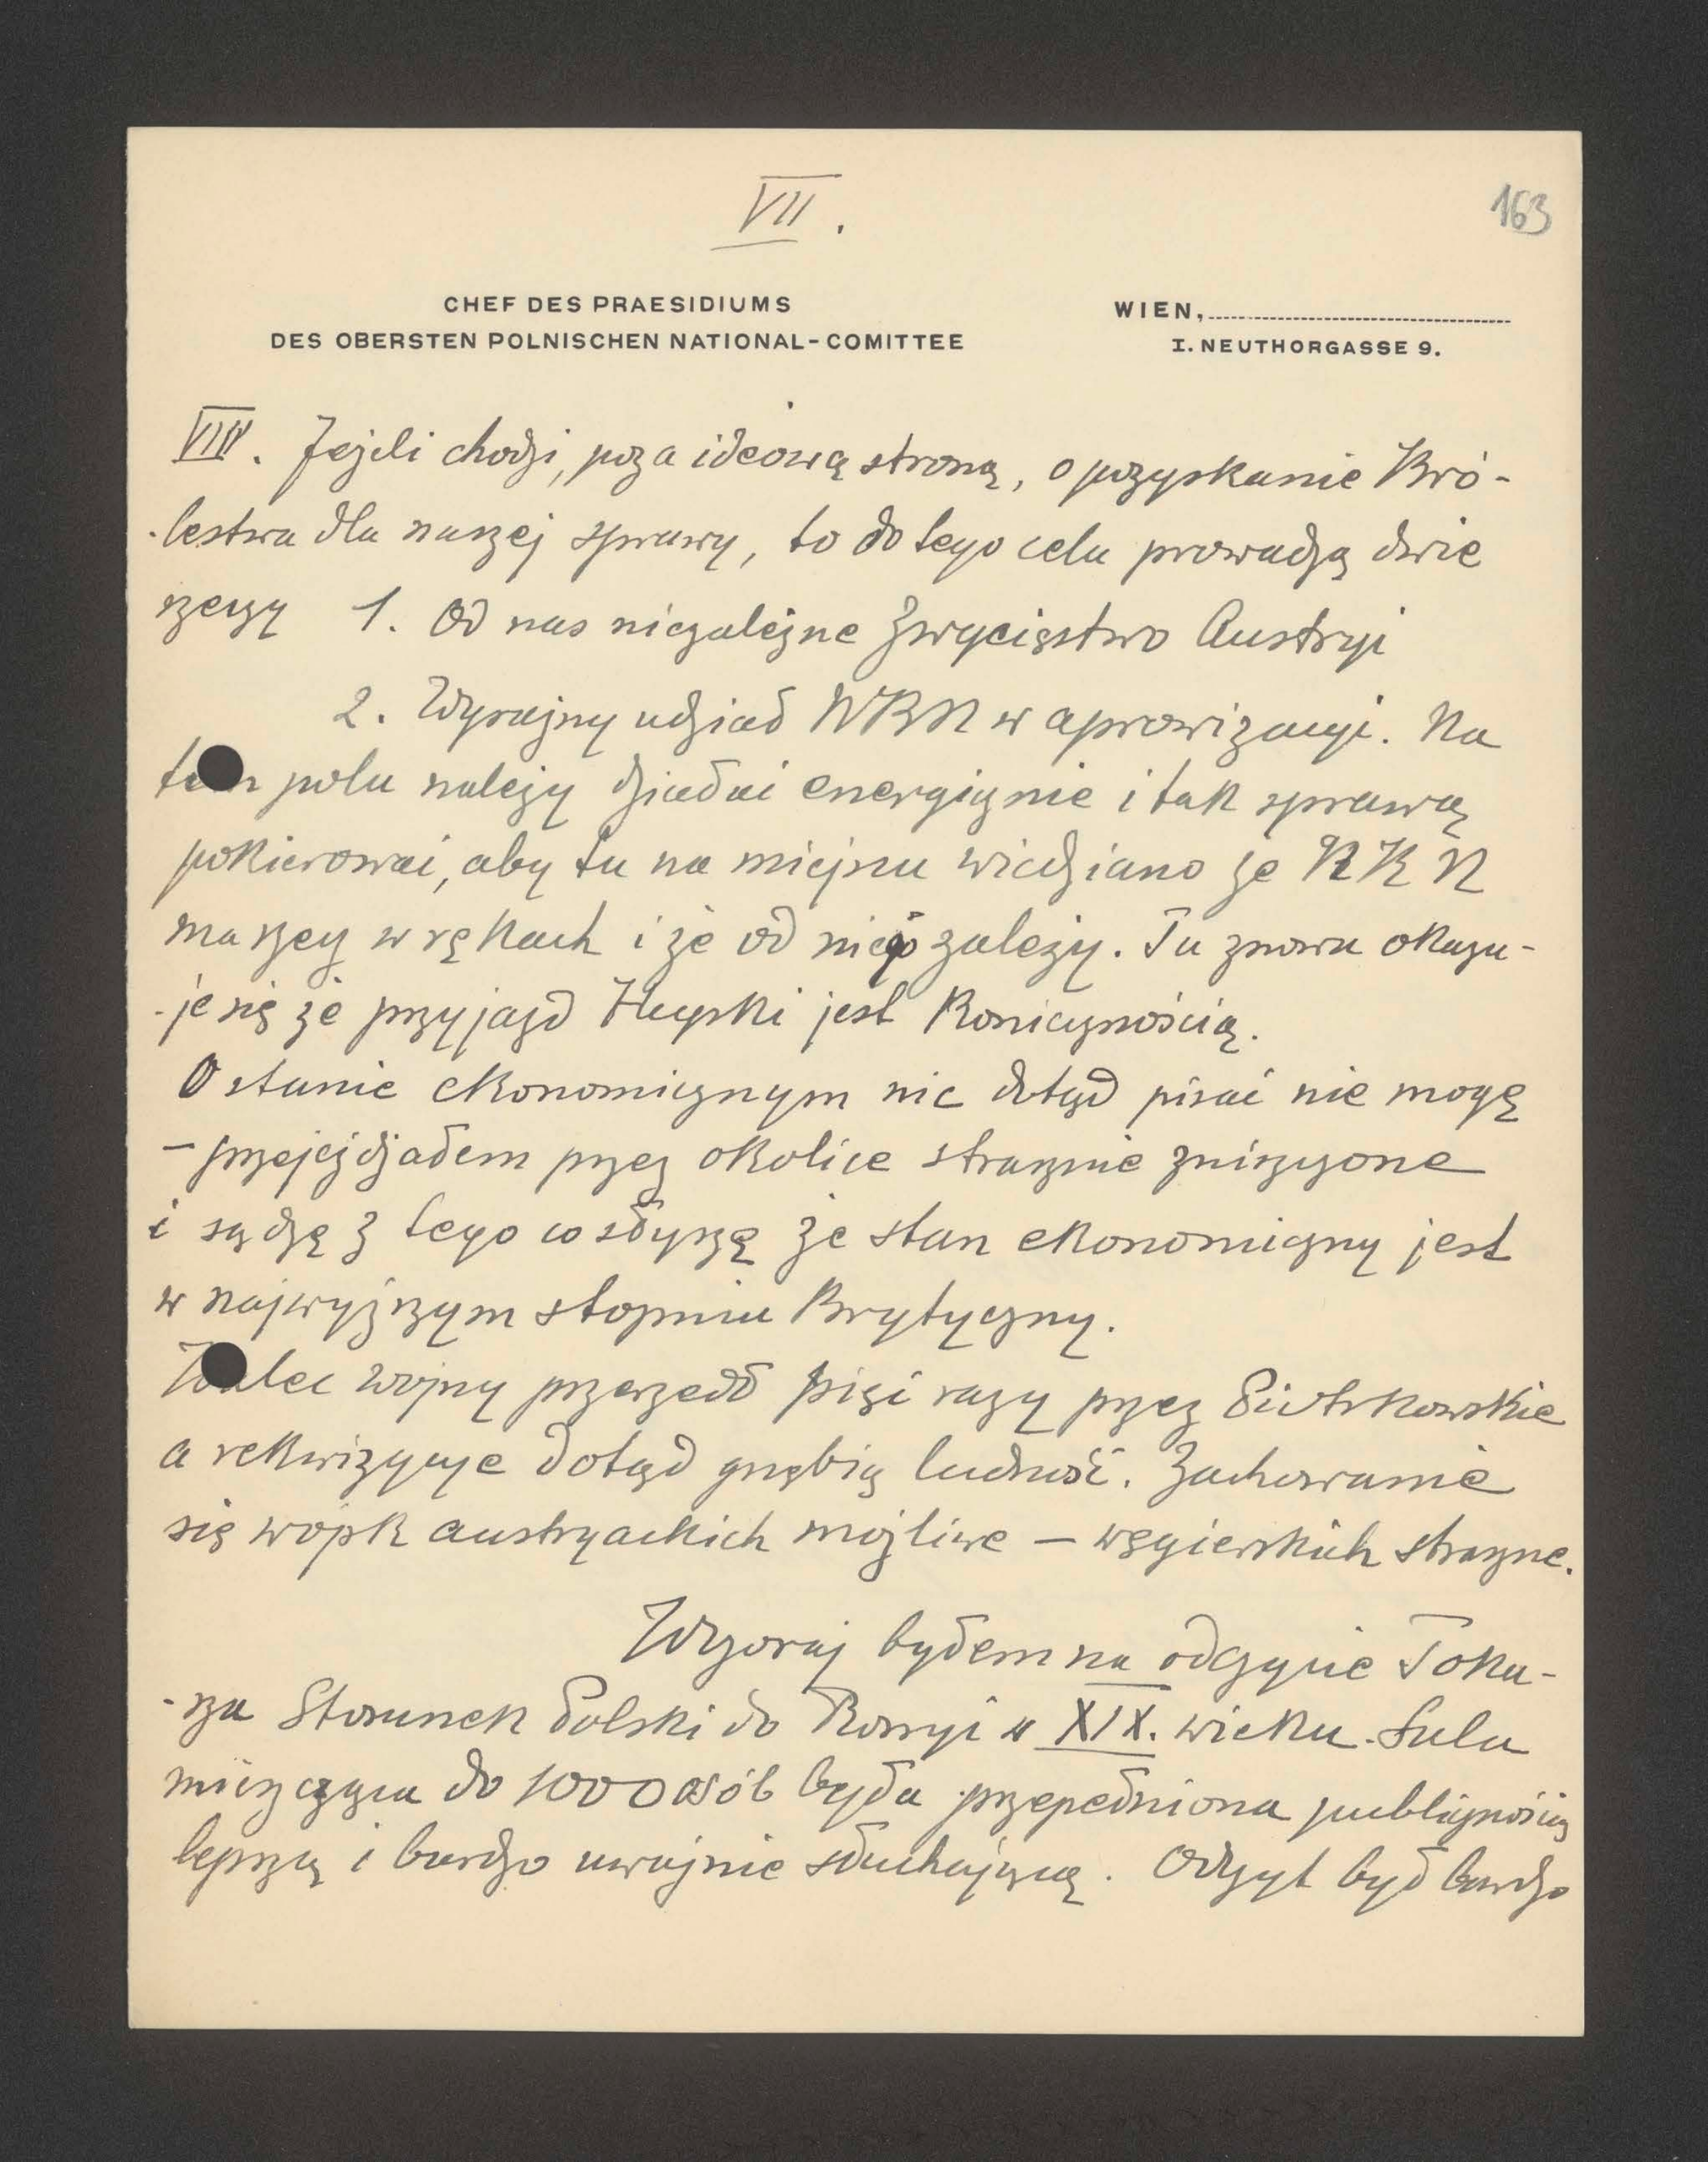 VII.
163
CHEF DES PRAESIDIUMS
DES OBERSTEN POLNISCHEN NATIONAL-COMITTEE
WIEN,
I. NEUTHORGASSE 9.
VIII. Jeżeli chodzi, poza ideową stroną, o pozyskanie Kró-
-lestwa dla naszej sprawy, to do tego celu prowadzą dwie
rzeczy 1. Od nas niezależne Zwycięstwo Austryi
2. Wyraźny udział NKN w aprowizacyi. Na
tem polu należy działać energicznie i tak sprawą
pokierować, aby tu na miejscu wiedziano że NKN
ma rzecz w rękach i że od niego zależy. Tu znowu okazu-
-je się że przyjazd Hupki jest Koniecznością.
O stanie ekonomicznym nic dotąd pisać nie mogę
– przejeżdżałem przez okolice strasznie zniszczone
i sądzę z tego co słyszę że stan ekonomiczny jest
w najwyższym stopniu Krytyczny.
Walec wojny przeszedł pięć razy przez Piotrkowskie
a rekwizycye dotąd gnębią ludność. Zachowanie
się wojsk austryackich możliwe – węgierskich straszne.
Wczoraj byłem na odczycie Toka-
-rza Stosunek Polski do Rosyi w XIX. wieku. Sala
mieszcząca do 1000 osób była przepełniona publicznością
lepszą i bardzo uważnie słuchającą. Odczyt był bardzo